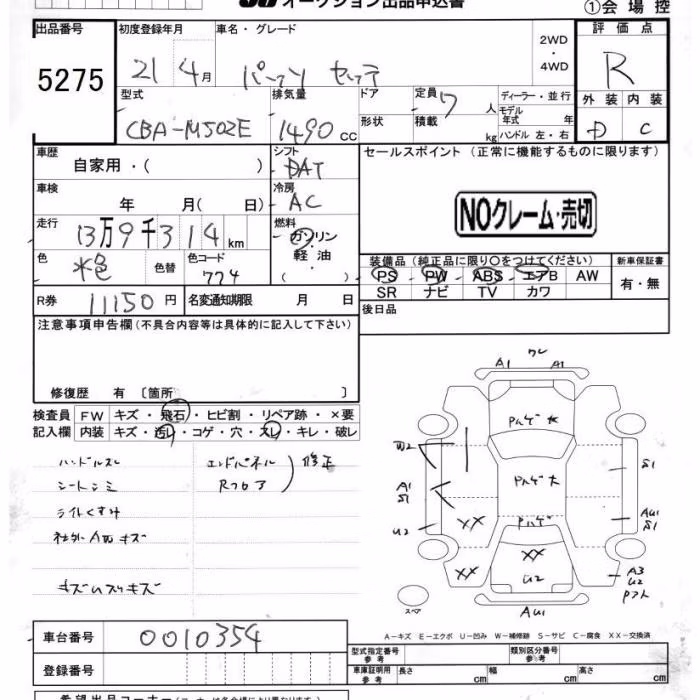 オークション出品申込書
①会場控
出品番号 5275
初度登録年月 21 4月
車名・グレード パッソ セッテ
2WD・4WD
評価点 R
外装 D 内装 C
型式 CBA-M502E
排気量 1490 CC
ドア
形状
定員 7 人
積載 kg
ディーラー・並行
モデル年式 年
ハンドル 左・右
車歴 自家用・( )
シフト DAT
セールスポイント (正常に機能するものに限ります)
NOクレーム・売切
車検 年 月( 日)
冷房 AC
走行 13万9千314km
燃料 ガソリン・軽油・( )
色 水色 色替 色コード 774
装備品(純正品に限り○をつけてください)
新車保証書
PS PW ABS エアB AW
SR ナビ TV カワ
有・無
R券 11150円 名変通知期限 月 日
後日品
注意事項申告欄(不具合内容等は具体的に記入して下さい)
修復歴 有 〔箇所 〕
検査員 FW キズ・飛石・ヒビ割・リペア跡・×要
記入欄 内装 キズ・汚レ・コゲ・穴・スレ・キレ・破レ
ハンドルスレ エンドパネル 修正
シートシミ Rフロア
ライトくすみ
社外AWキズ
A1 ワレ A1
Pハゲ大
W2 S1
Pハゲ大
A1 S1 AU1 S1
Pハゲ
U2 XX
XX XX A3 U2
U2
スペア AU1
A-キズ E-エクボ U-凹み W-補修跡 S-サビ C-腐食 XX-交換済
車台番号 0010354
型式指定番号 参考 類別区分番号 参考
登録番号
車庫証明用 参考 長さ cm 幅 cm 高さ cm